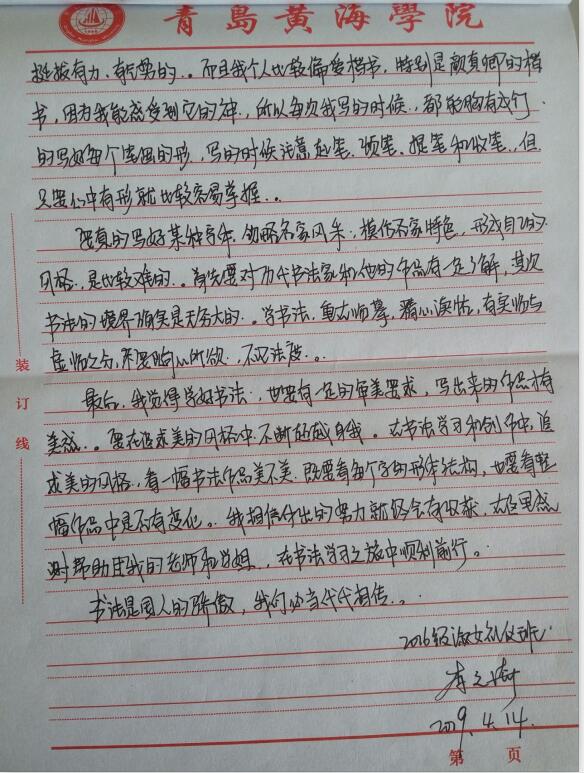 青岛黄海學院
挺拔有力、有气势的。。而且我个人比较偏爱楷书，特别是颜真卿的楷
书，因为我能感受到它的神，所以每次我写的时候，都能胸有成竹
的写好每个笔画的形，写的时候注意起笔、顿笔、提笔和收笔，但
只要心中有形就比较容易掌握。。
要真的写好某种字体，领略名家风采，模仿名家特色，形成自己的
风格，是比较难的。。首先要对历代书法家和他的作品有一定了解，其次
书法的境界确实是无穷大的。学书法，重在师摹，精心读帖，有实师与
虚师之分，不要随心所欲，不讲法度。。
最后，我觉得学好书法，也要有一定的审美要求，写出来的作品才有
美感。。要在追求美的风格中不断的超越自我。在书法学习和创作中，追
求美的风格，看一幅书法作品美不美，既要看每个字的形体结构，也要看整
幅作品中是否有变化。我相信付出的努力就终会有收获，在这里感
谢帮助过我的老师和学姐，在书法学习之旅中顺利前行。
书法是国人的骄傲，我们必当代代相传。。
2016级淑女礼仪班
李文
2019.4.14.
装订线
第 页